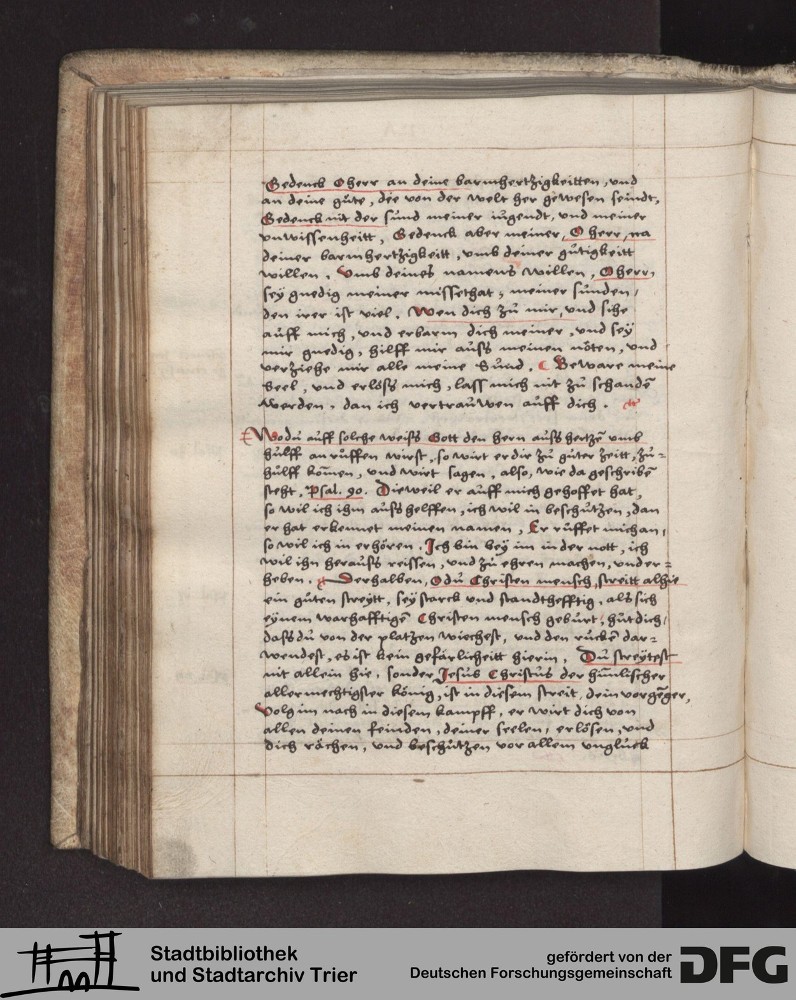 Gedenck O herr an deine barmhertzigkeitten, vnd
an deine güte, die von der welt her gewesen seindt,
Gedenck nit der sünd meiner iugendt, vnd meiner
vnwissenheitt, Gedenck aber meiner, O herr, na
deiner barmhertzigkeitt, vmb deiner gütigkeitt
willen. Vmb deines namens willen, O herr,
sey gnedig meiner missethat, meiner sünden,
den irer ist viel. Wen dich zü mir, vnd sihe
auff mich, vnd erbarm dich meiner, vnd sey
mir gnedig, hilff mir auss meinen nöten, vnd
verziehe mir alle meine Sünd. Beware meine
seel, vnd erlöss mich, lass mich nit zü schandē
werden, dan ich vertrauwen auff dich.
Wo dü auff solche weiss Gott den hern auss hertzē vmb
hülff anrüffen wirst, so wirt er dir zü güter zeitt, zü=
hülff kom̄en, vnd wirt sagen, also, wie da geschribē
steht, Psal. 90. Dieweil er auff mich gehoffet hat,
so wil ich ihm auss helffen, ich wil in beschützen, dan
er hat erkennet meinen namen, Er rüffet mich an,
so wil ich in erhören. Ich bin bey im in der nott, ich
wil ihn herauss reissen, vnd zü ehren machen, vnder=
heben. Derhalben, O dü Christen mensch, streitt alhie
ein güten streytt, sey starck vnd standthefftig, als sich
eynem warhafftigē Christen mensch gebürt, hüt dich,
dass dü von der platzen wiechest, vnd den rückē dar=
wendest, es ist kein gefärlicheitt hierin, Dü streytest
nit allein hie, sonder Jesüs Christüs der hümlischer
allermechtigster könig, ist in diesem streit, dein vorgēger,
Volg im nach in diesem kampff, er wirt dich von
allen deinen feinden, deiner seelen, erlösen, vnd
dich rächen, vnd beschützen vor allem vnglück
Stadtbibliothek
und Stadtarchiv Trier
gefördert von der
Deutschen Forschungsgemeinschaft
DFG